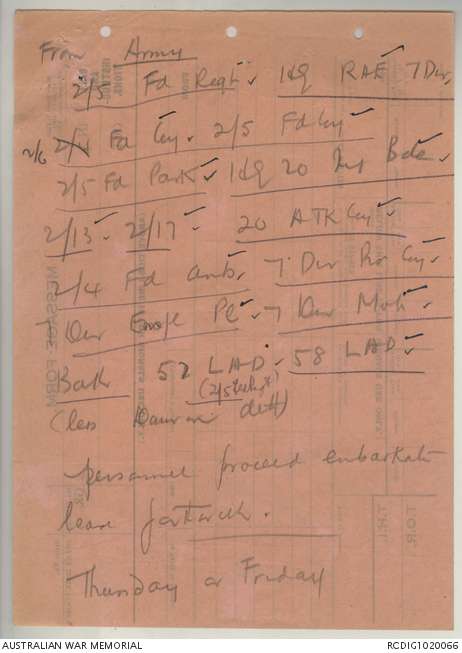 From Army
2/5 Fd Regt ✓ HQ RAE ✓ 7 Div
2/6 Fd Coy ✓ 2/5 Fd Coy ✓
2/5 Fd Park ✓ HQ 20 Inf Bde ✓
2/13 ✓ 2/17 ✓ 20 ATK Coy ✓
2/4 Fd Amb ✓ 7 Div Pro Coy ✓
7 Div Empl Pl ✓ 7 Div Mob ✓
Bath 52 LAD ✓ 58 LAD ✓
(2/5 Fd Regt)
(less Darwin dett)
personnel proceed embarkation
leave forthwith.
Thursday or Friday
MESSAGE FORM
T.H.I.
T.O.R.
AUSTRALIAN WAR MEMORIAL
RCDIG1020066